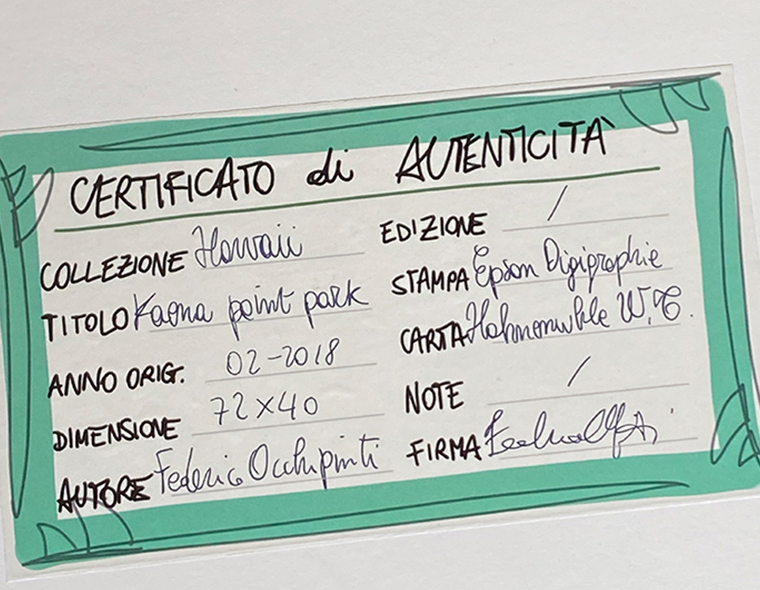 CERTIFICATO di AUTENTICITÀ
COLLEZIONE Hawaii
TITOLO Kaena point park
ANNO ORIG. 02-2018
DIMENSIONE 72x40
AUTORE Federico Occhipinti
EDIZIONE /
STAMPA Epson Digigraphie
CARTA Hahnemuhle W.C.
NOTE /
FIRMA